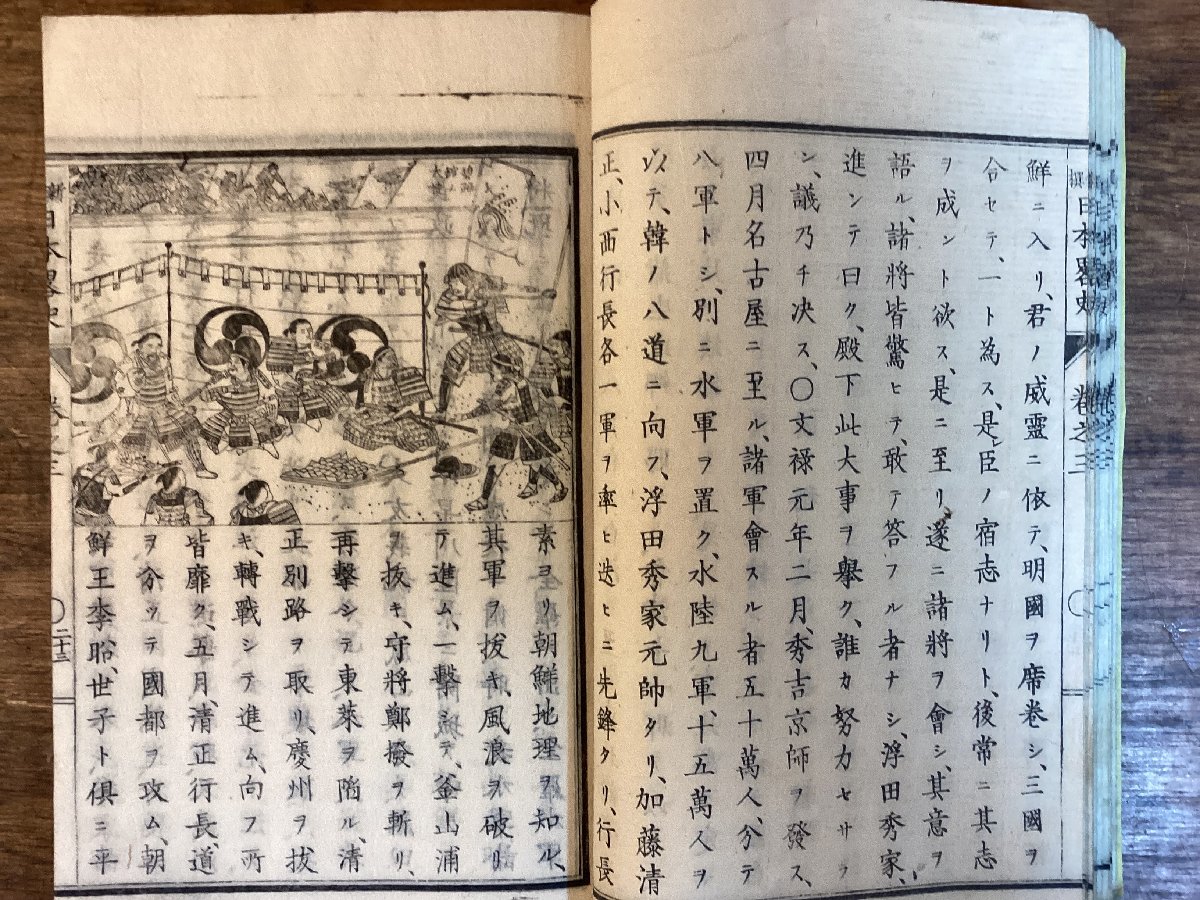 鮮ニ入リ、君ノ威靈ニ依テ、明國ヲ席卷シ、三國ヲ
合セテ、一ト為ス、是臣ノ宿志ナリト、後常ニ其志
ヲ成ント欲ス、是ニ至リ、遂ニ諸將ヲ會シ、其意ヲ
語ル、諸將皆驚ヒテ、敢テ答フル者ナシ、浮田秀家、
進ンテ曰ク、殿下此大事ヲ擧ク、誰カ努力セサラ
ン、議乃チ决ス、〇文禄元年二月、秀吉京師ヲ發ス、
四月名古屋ニ至ル、諸軍會スル者五十萬人、分テ
八軍トシ、別ニ水軍ヲ置ク、水陸九軍、十五萬人ヲ
以テ、韓ノ八道ニ向フ、浮田秀家元帥タリ、加藤清
正、小西行長各一軍ヲ率ヒ迭ヒニ先鋒タリ、行長
素ヨリ朝鮮地理ヲ知ル、
其軍ヲ拔キ、風浪ヲ破リ
テ進ム、一擊シテ、釜山浦
ヲ拔キ、守將鄭撥ヲ斬リ、
再擊シテ東萊ヲ陷ル、清
正別路ヲ取リ、慶州ヲ拔
キ、轉戰シテ進ム、向フ所
皆靡ク、五月、清正行長、道
ヲ分ツテ國都ヲ攻ム、朝
鮮王李昖、世子ト俱ニ平
日本畧史
卷之三
〇
二十三